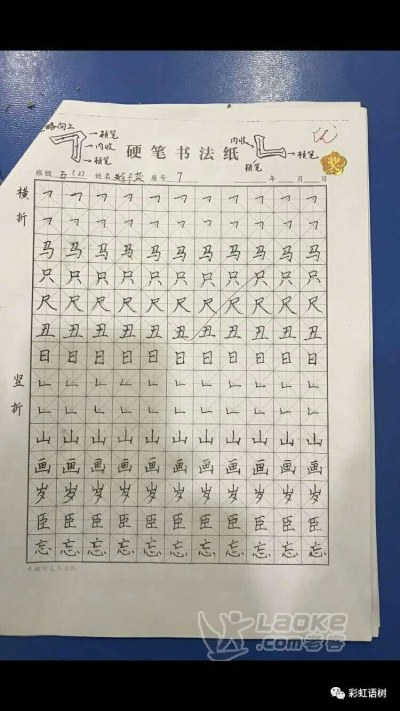 略向上
→顿笔
→内收
→顿笔
硬笔书法纸
内收
顿笔
→顿笔
优
奖
班级 五(2) 姓名 座号 7 年 月 日
横折
㇕ ㇕ ㇕ ㇕ ㇕ ㇕ ㇕ ㇕ ㇕ ㇕ ㇕
㇕ ㇕ ㇕ ㇕ ㇕ ㇕ ㇕ ㇕ ㇕ ㇕ ㇕
马 马 马 马 马 马 马 马 马 马 马
只 只 只 只 只 只 只 只 只 只 只
尺 尺 尺 尺 尺 尺 尺 尺 尺 尺 尺
丑 丑 丑 丑 丑 丑 丑 丑 丑 丑 丑
日 日 日 日 日 日 日 日 日 日 日
竖折
㇗ ㇗ ㇗ ㇗ ㇗ ㇗ ㇗ ㇗ ㇗ ㇗ ㇗
㇗ ㇗ ㇗ ㇗ ㇗ ㇗ ㇗ ㇗ ㇗ ㇗ ㇗
山 山 山 山 山 山 山 山 山 山 山
画 画 画 画 画 画 画 画 画 画 画
岁 岁 岁 岁 岁 岁 岁 岁 岁 岁 岁
臣 臣 臣 臣 臣 臣 臣 臣 臣 臣 臣
忘 忘 忘 忘 忘 忘 忘 忘 忘 忘 忘
LAOKE
.com老客
彩虹语树